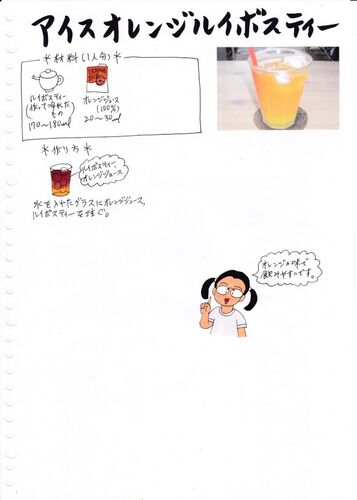 アイスオレンジルイボスティー
*材料(1人分)*
ルイボスティー
(作って冷れた
もの
170〜180ml
オレンジジュース
(100%)
20〜30ml
*作り方*
ルイボスティー
オレンジジュース
氷を入れたグラスにオレンジジュース,
ルイボスティーを注ぐ。
オレンジの味で
飲みやすいです。